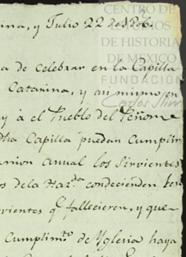 CENTRO DE
ESTUDIOS
DE HISTORIA
DE MÉXICO
FUNDACIÓN
Carlos Slim
ina, y Julio 22 de 1826.
a de celebrar en la Capilla
Catarina, y asimismo en
y à el Pueblo del Peñon
dha Capilla puedan Cumplir
union anual los Sirvientes
os de la Haz.da condecienden
vientes q.e fallecieren, y que
Cumplim.to de Yglesia haya